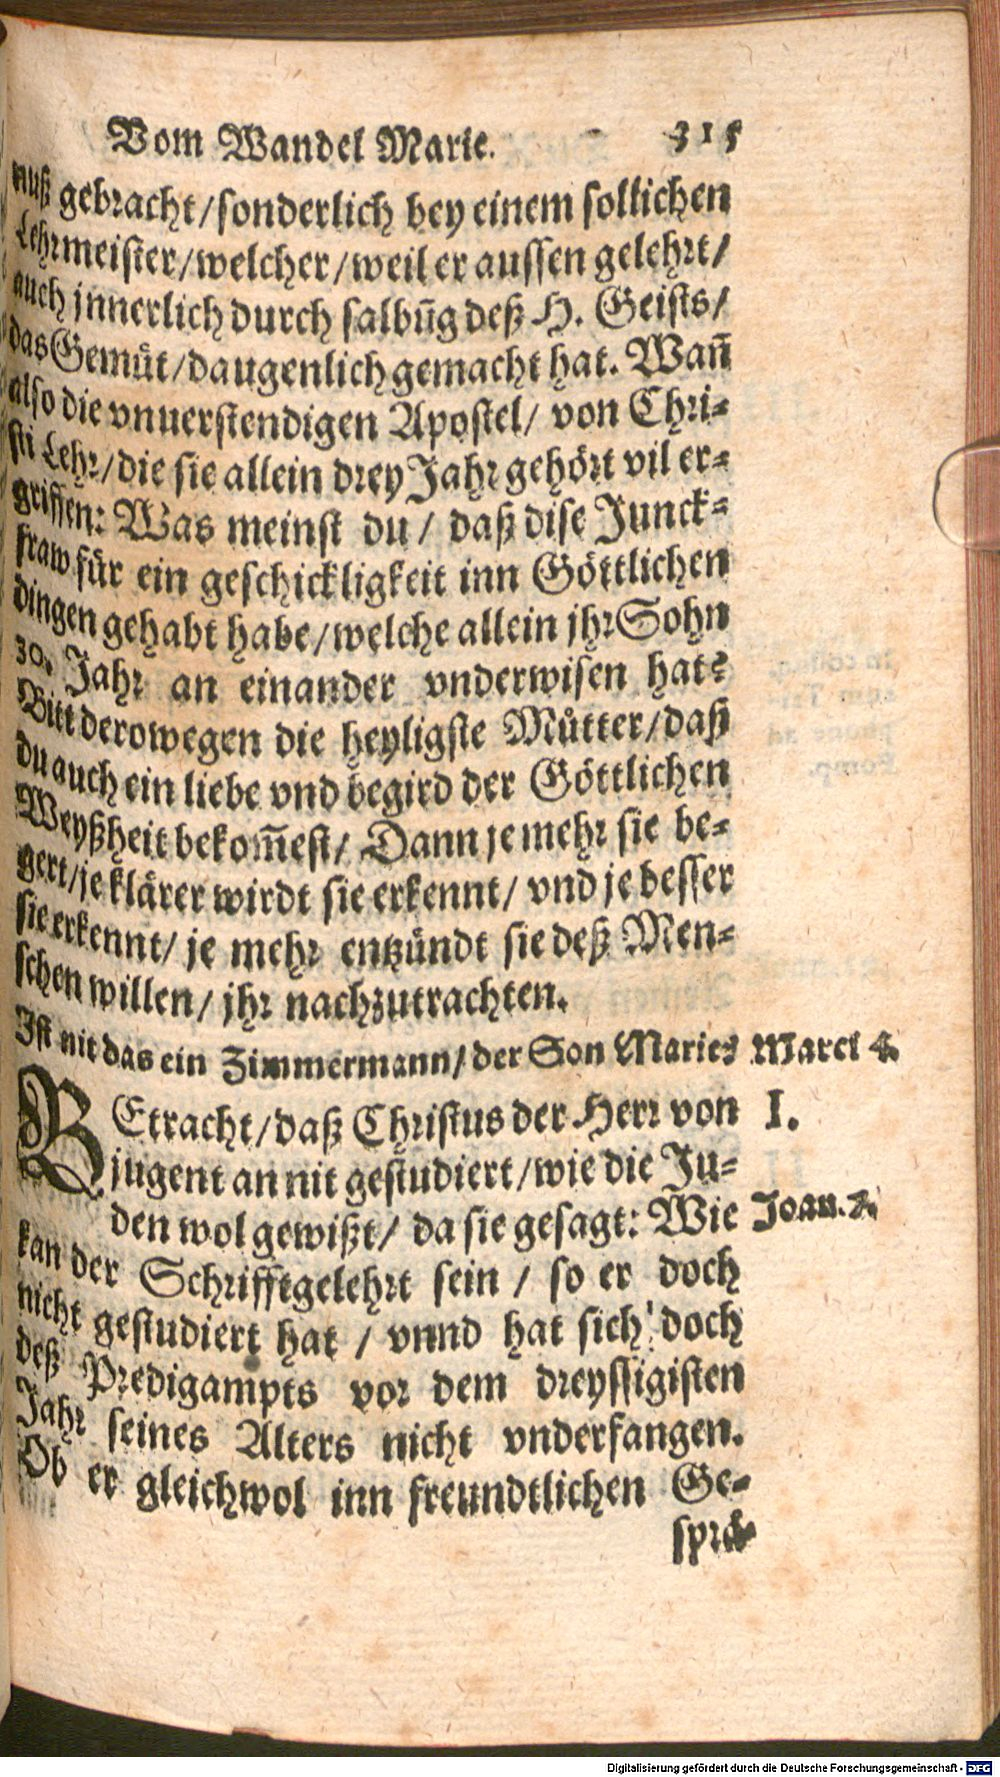 Vom Wandel Marie. 315
nuß gebracht/sonderlich bey einem sollichen
Lehrmeister/welcher/weil er aussen gelehrt/
auch jnnerlich durch salbūg deß H. Geists/
das Gemüt/daugenlich gemacht hat. Wañ
also die vnuerstendigen Apostel/ von Chri-
sti Lehr/die sie allein drey Jahr gehört vil er-
griffen: Was meinst du/ daß dise Junck-
fraw für ein geschickligkeit inn Göttlichen
dingen gehabt habe/welche allein jhr Sohn
30. Jahr an einander vnderwisen hat?
Bitt derowegen die heyligste Mütter/daß
du auch ein liebe vnd begird der Göttlichen
Weyßheit bekom̄est/ Dann je mehr sie be-
gert/je klärer wirdt sie erkennt/ vnd je besser
sie erkennt/ je mehr entzündt sie deß Men-
schen willen/ jhr nachzutrachten.
Ist nit das ein Zimmermann/der Son Marie? Marci 6.
BEtracht/daß Christus der Herr von I.
jugent an nit gestudiert/wie die Ju-
den wol gewißt/ da sie gesagt: Wie Joan. 7.
kan der Schrifftgelehrt sein / so er doch
nicht gestudiert hat / vnnd hat sich doch
deß Predigampts vor dem dreyssigisten
Jahr seines Alters nicht vnderfangen.
Ob er gleichwol inn freundtlichen Ge-
sprä-
Digitalisierung gefördert durch die Deutsche Forschungsgemeinschaft - DFG